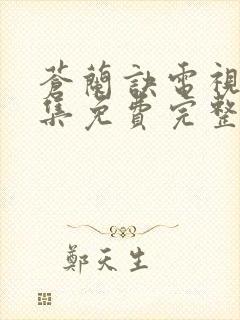 蒼蘭訣電視
集免費完整
鄭天生